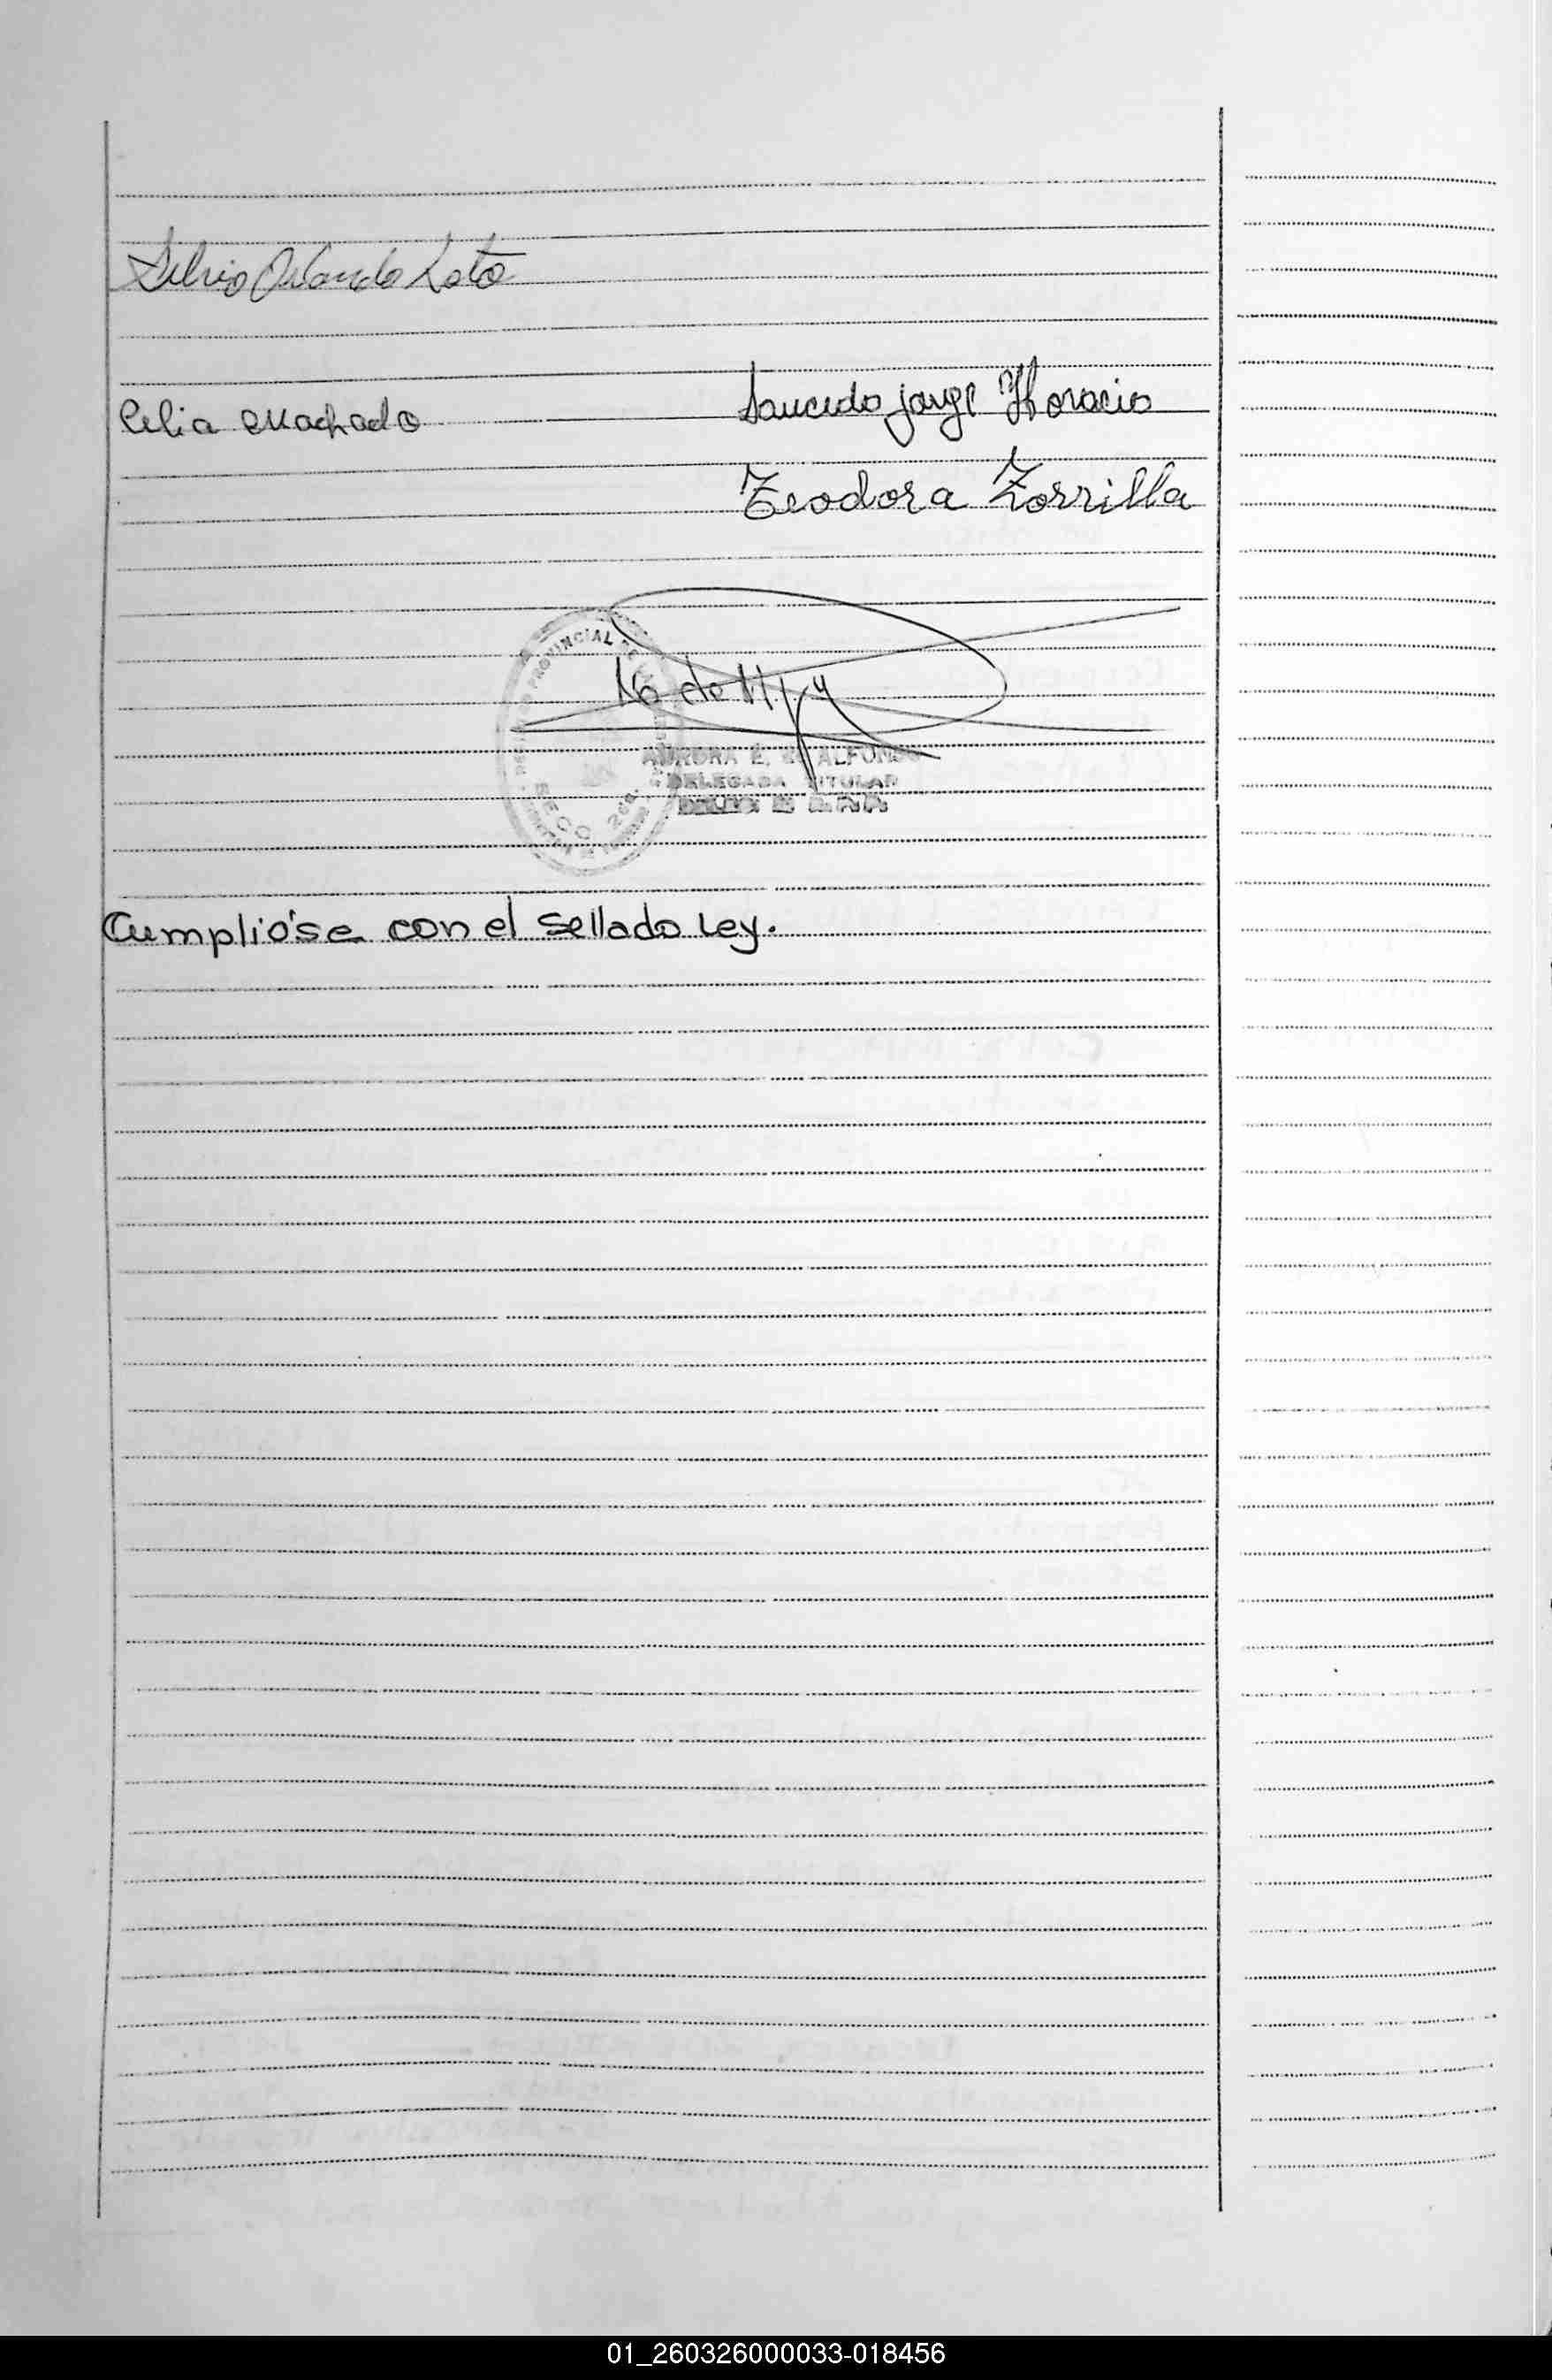 Silvio Orlando Soto
Celia Machado
Saucedo jorge Horacio
Teodora Zorrilla
PROVINCIAL
AURORA E. DE ALFONSO
DELEGADA TITULAR
SECC
Cumplióse con el sellado Ley.
01_260326000033-018456